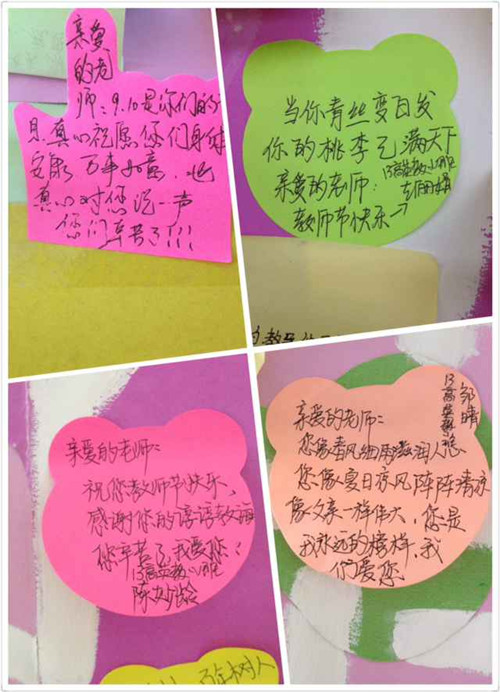 亲爱
的老
师：9.10是你们的节
日，真心祝愿您们身体
安康 万事如意，也
真心对您说一声
您们辛苦了！！！
当你青丝变白发
你的桃李已满天下
亲爱的老师：
教师节快乐
亲爱的老师：
祝您教师节快乐，
感谢您的谆谆教诲
您辛苦了，我爱您！
陈妙龄
亲爱的老师：
您像春风细雨滋润人心
您像夏日凉风阵阵清凉
像父亲一样伟大，您是
我永远的榜样，我
们爱您
百年树人